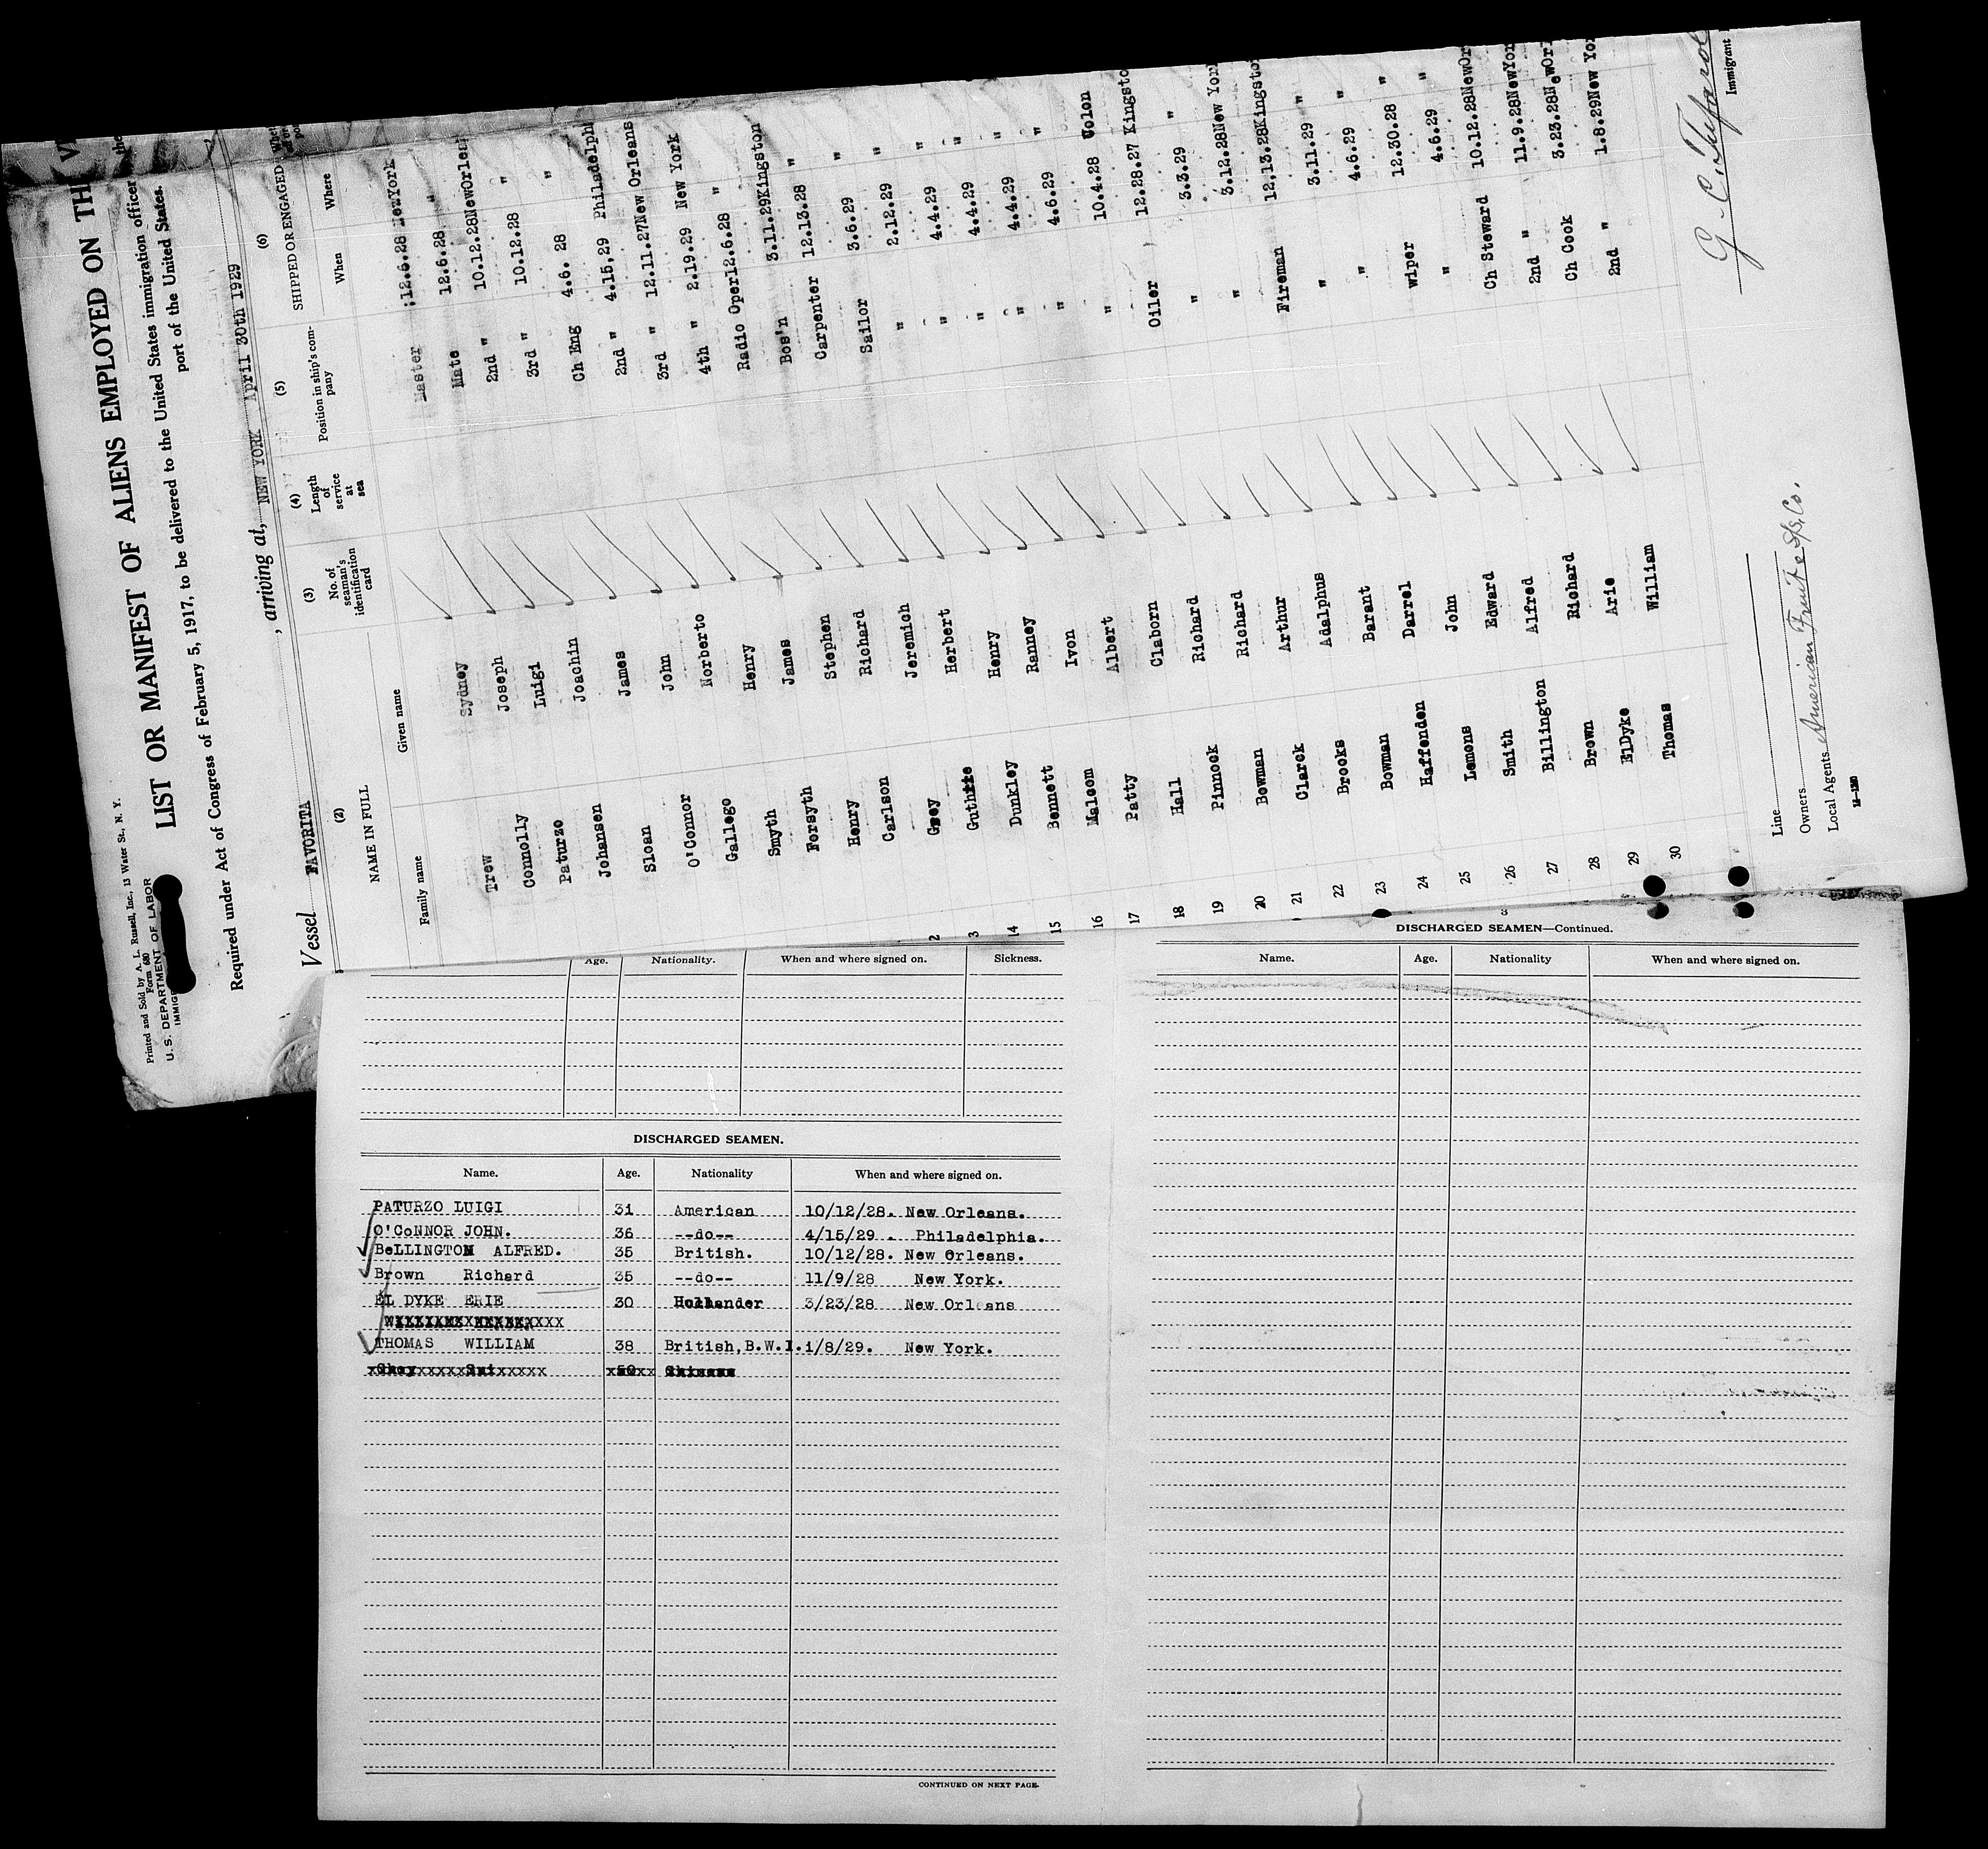 Printed and Sold by A. L. Russell, Inc., 13 Water St., N. Y.
Form 680
U. S. DEPARTMENT OF LABOR
LIST OR MANIFEST OF ALIENS EMPLOYED ON THE
Required under Act of Congress of February 5, 1917, to be delivered to the United States immigration officer
port of the United States.
Vessel FAVORITA, arriving at, NEW YORK April 30th 1929
(2) (3) (4) (5) (6)
NAME IN FULL No. of seaman's identification card Length of service at sea Position in ship's company SHIPPED OR ENGAGED
Family name Given name When Where
Trew Sydney Master 12.6.28 NewYork
Connolly Joseph Mate 12.6.28 "
Paturzo Luigi 2nd " 10.12.28NewOrleans
Johansen Joachin 3rd " 10.12.28 "
Sloan James Ch Eng 4.6.28 "
O'Connor John 2nd " 4.15.29 Philadelph
Gallego Norberto 3rd " 12.11.27New Orleans
Smyth Henry 4th " 2.19.29 New York
Forsyth James Radio Oper12.6.28 "
Henry Stephen Bos'n 3.11.29Kingston
Carlson Richard Carpenter 12.13.28 "
2 Grey Jeremich Sailor 3.6.29 "
3 Guthrie Herbert " 2.12.29 "
14 Dunkley Henry " 4.4.29 "
15 Bennett Ranney " 4.4.29 "
16 Malcom Ivon " 4.4.29 "
17 Patty Albert " 4.6.29 "
18 Hall Claborn " 10.4.28 Colon
19 Pinnock Richard Oiler 12.28.27 Kingsto
20 Bowman Richard " 3.3.29 "
21 Clarck Arthur " 3.12.28New York
22 Brooks Adalphus Fireman 12.13.28Kingsto
23 Bowman Barant " 3.11.29 "
24 Haffenden Darrel " 4.6.29 "
25 Lemons John wiper 12.30.28 "
26 Smith Edward " 4.6.29 "
27 Billington Alfred Ch Steward 10.12.28NewOr
28 Brown Richard 2nd " 11.9.28NewYor
29 ElDyke Arie Ch Cook 3.23.28NewOrl
30 Thomas William 2nd " 1.8.29New Yo
Line
Owners
Local Agents American Fruit & S/S. Co.
Immigrant
Age. Nationality. When and where signed on. Sickness.
DISCHARGED SEAMEN.
Name. Age. Nationality When and where signed on.
PATURZO LUIGI 31 American 10/12/28. New Orleans.
O'CoNNOR JOHN. 36 --do-- 4/15/29 . Philadelphia.
BeLLINGTON ALFRED. 35 British. 10/12/28. New Orleans.
Brown Richard 35 --do-- 11/9/28 New York.
EL DYKE ERIE 30 Hollander 3/23/28 New Orleans
THOMAS WILLIAM 38 British,B.W.I. 1/8/29. New York.
CONTINUED ON NEXT PAGE.
DISCHARGED SEAMEN—Continued.
Name. Age. Nationality When and where signed on.